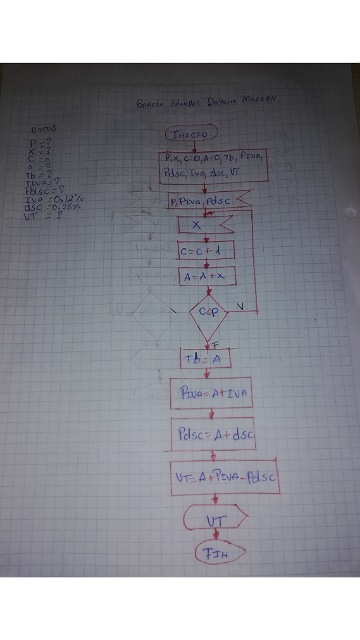 DATOS
P = ?
X = ?
C = 0
A = 0
Tb = ?
PIVA = ?
Pdsc = ?
IVA = 0.12%
dsc = 0.35%
VT = ?
INICIO
P, X, C=0, A=0, Tb, PIVA,
Pdsc, Iva, dsc, VT
P, PIVA, Pdsc
X
C = C + 1
A = A + x
C<P
V
F
Tb = A
PIVA = A + IVA
Pdsc = A + dsc
VT = A + PIVA - Pdsc
VT
FIN